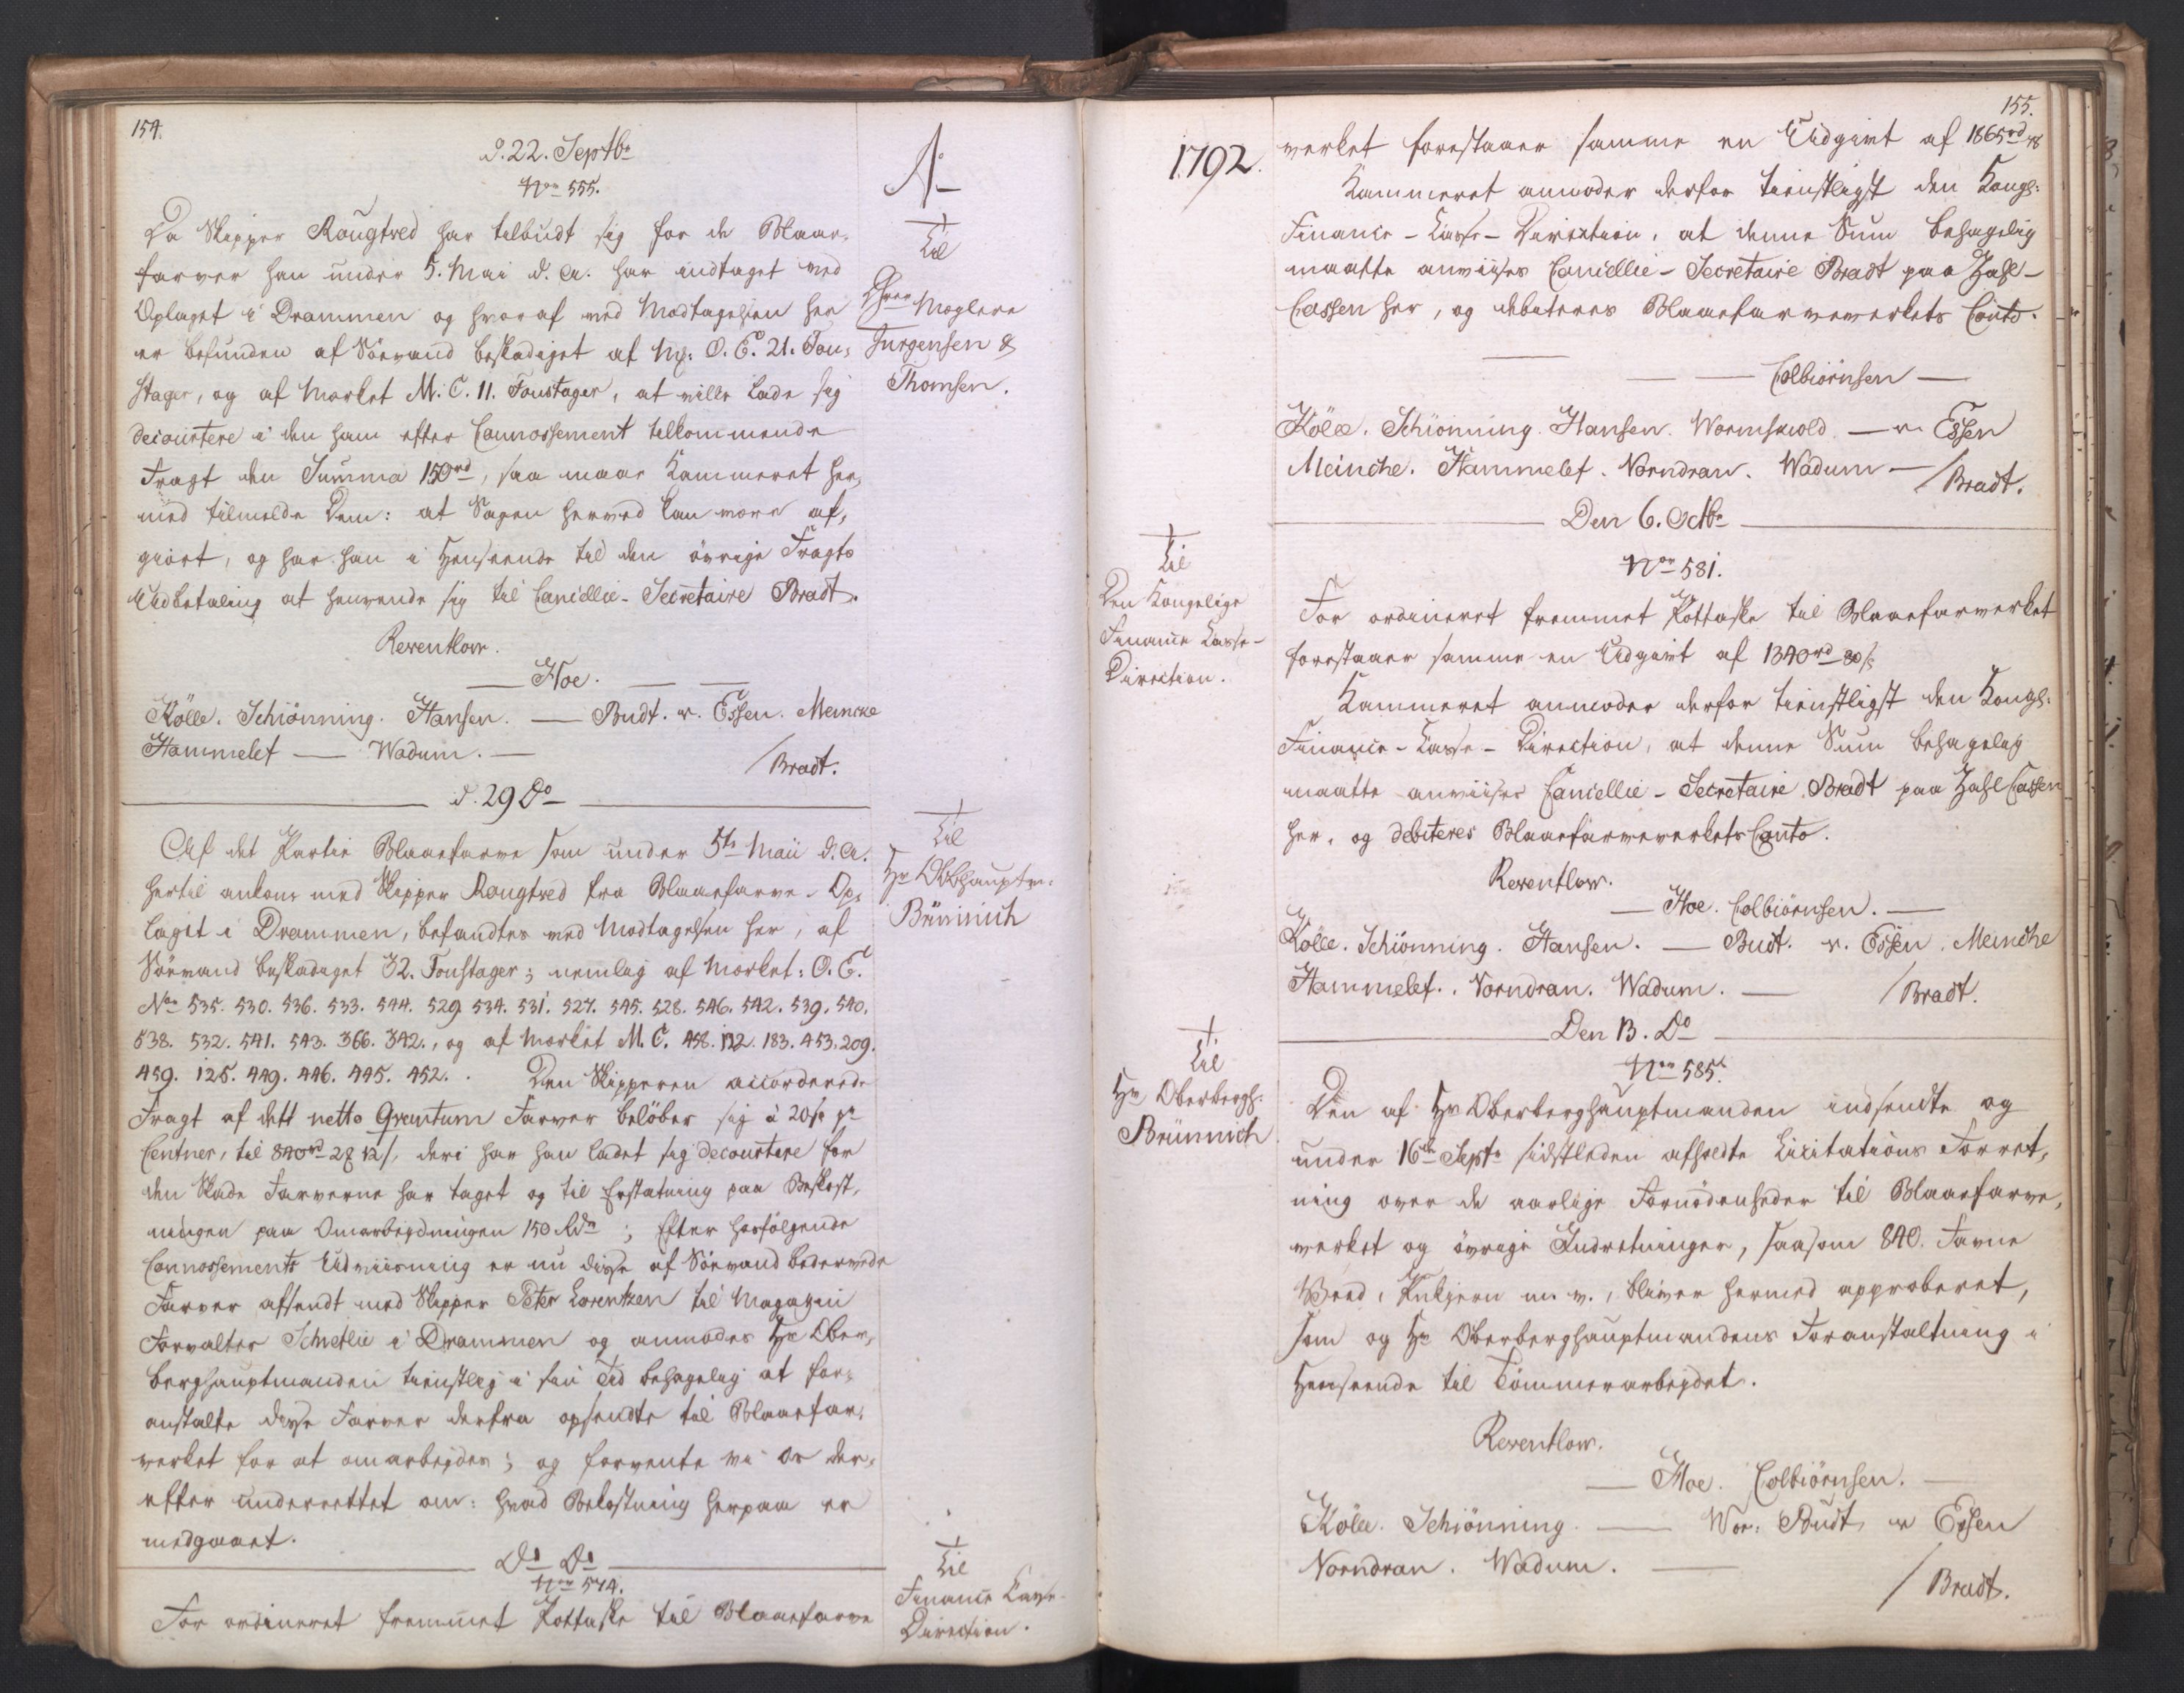 154.
d. 22. Septbr
Nro 555.
Ao
Da Skipper Rougtved har tilbudt sig for de Blaae-
farver han under 5. Mai d. A. har indtaget ved
Oplaget i Drammen og hvoraf ved Modtagelsen her
er befunden af Söevand beskadiget af Mk: O. E. 21. Fou-
stager, og af Mærket M. C. 11. Foustager, at ville lade sig
decourtere i den ham efter Connossement tilkommende
Fragt den Summa 150 rd, saa maae Kammeret her-
med tilmelde Dem: at Sagen herved kan være af-
giort, og har han i Henseende til den övrige Fragts
Udbetaling at henvende sig til Cancellie-Secretaire Bradt.
Til
Hrr Mæglere
Jürgensen &
Thomsen.
Reventlow.
— Hoe. — —
Kölle. Schiönning. Hansen. — Budt. v. Essen. Meincke
Hammelef — Wadum. —
/Bradt.
d. 29 Do
Af det Partie Blaaefarve som under 5te Maii d. A.
hertil ankom med Skipper Rougtved fra Blaaefarve-Op-
laget i Drammen, befandtes ved Modtagelsen her, af
Söevand beskadiget 32. Foustager; nemlig af Mærket: O. E.
Nro 535. 530. 536. 533. 544. 529. 534. 531. 527. 545. 528. 546. 542. 539. 540.
538. 532. 541. 543. 366. 342., og af Mærket M. C. 458. 122. 183. 453. 209.
459. 125. 449. 446. 445. 452. Den Skipperen accorderede
Fragt af dett netto Qventum Farver belöber sig à 20 s pr
Centner, til 840 rd 2 12 s, deri har han ladet sig decourtere for
den Skade Farverne har taget og til Erstatning paa Bekost-
ningen paa Omarbejdningen 150 Rdr; Efter hosfölgende
Connossements Udviisning er nu disse af Söevand bedervede
Farver afsendt med Skipper Peter Lorentzen til Magazin
Forvalter Schvetlie i Drammen og anmodes Hr Ober-
berghauptmanden tienstlig i sin Tid behagelig at for-
anstalte disse Farver derfra opsendte til Blaaefar-
verket for at omarbejdes; og forvente vi os der-
efter underrettet om: hvad Bekostning herpaa er
medgaaet.
Til
Hr Obbhauptm:
Brünnich
Do Do
Nro 574.
For ordineret fremmet Pottaske til Blaaefarve
Til
Finance Casse-
Direction.
155.
1792.
verket forestaaer samme en Udgivt af 1865 rd 78
Kammeret anmoder derfor tienstligst den Kongl:
Finance-Casse-Direction, at denne Sum behagelig
maatte anviises Cancellie-Secretaire Bradt paa Zahl-
Cassen her, og debiteres Blaaefarveverkets Conto.
— — — Colbiörnsen —
Kölle. Schiönning. Hansen. Wormskiold — v. Essen
Meincke. Hammelef. Norndran. Wadum —
/Bradt.
Den 6. Octbr
Nro 581.
Til
Den Kongelige
Finance Casse-
Direction.
For ordineret fremmet Pottaske til Blaaefarverket
forestaaer samme en Udgivt af 1340 rd 80 s
Kammeret anmoder derfor tienstligst den Kongl:
Finance-Casse-Direction, at denne Sum behagelig
maatte anviises Cancellie-Secretaire Bradt paa Zahl Cassen
her, og debiteres Blaaefarveverkets Conto.
Reventlow.
— Hoe. Colbiörnsen. —
Kölle. Schiönning. Hansen. — Budt. v. Essen. Meincke
Hammelef. Norndran. Wadum. —
/Bradt.
Den 13. Do
Nro 585.
Til
Hr Oberbergh:
Brünnich
Den af Hr Oberberghauptmanden indsendte og
under 16de Septr sidstleden afholdte Licitations Forret-
ning over de aarlige Fornödenheder til Blaaefarve-
verket og övrige Indretninger, saasom 840. Favne
Veed, Kulgiern m. v., bliver hermed approberet,
som og Hr Oberberghauptmandens Foranstaltning i
Henseende til Tömmerarbejdet.
Reventlow.
— Hoe. Colbiörnsen. —
Kölle. Schiönning. — Wor: Budt v Essen
Norndran. Wadum. —
/Bradt.